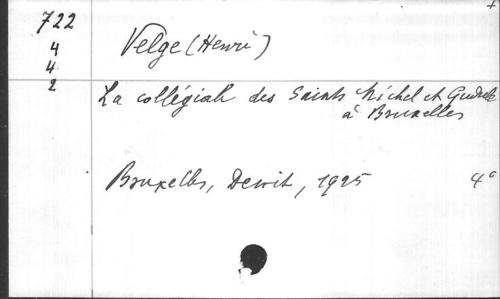 722
4
4
2
Velge (Henri)
La collégiale des Saints Michel et Gudule
à Bruxelles
Bruxelles, Dewit, 1925
4°